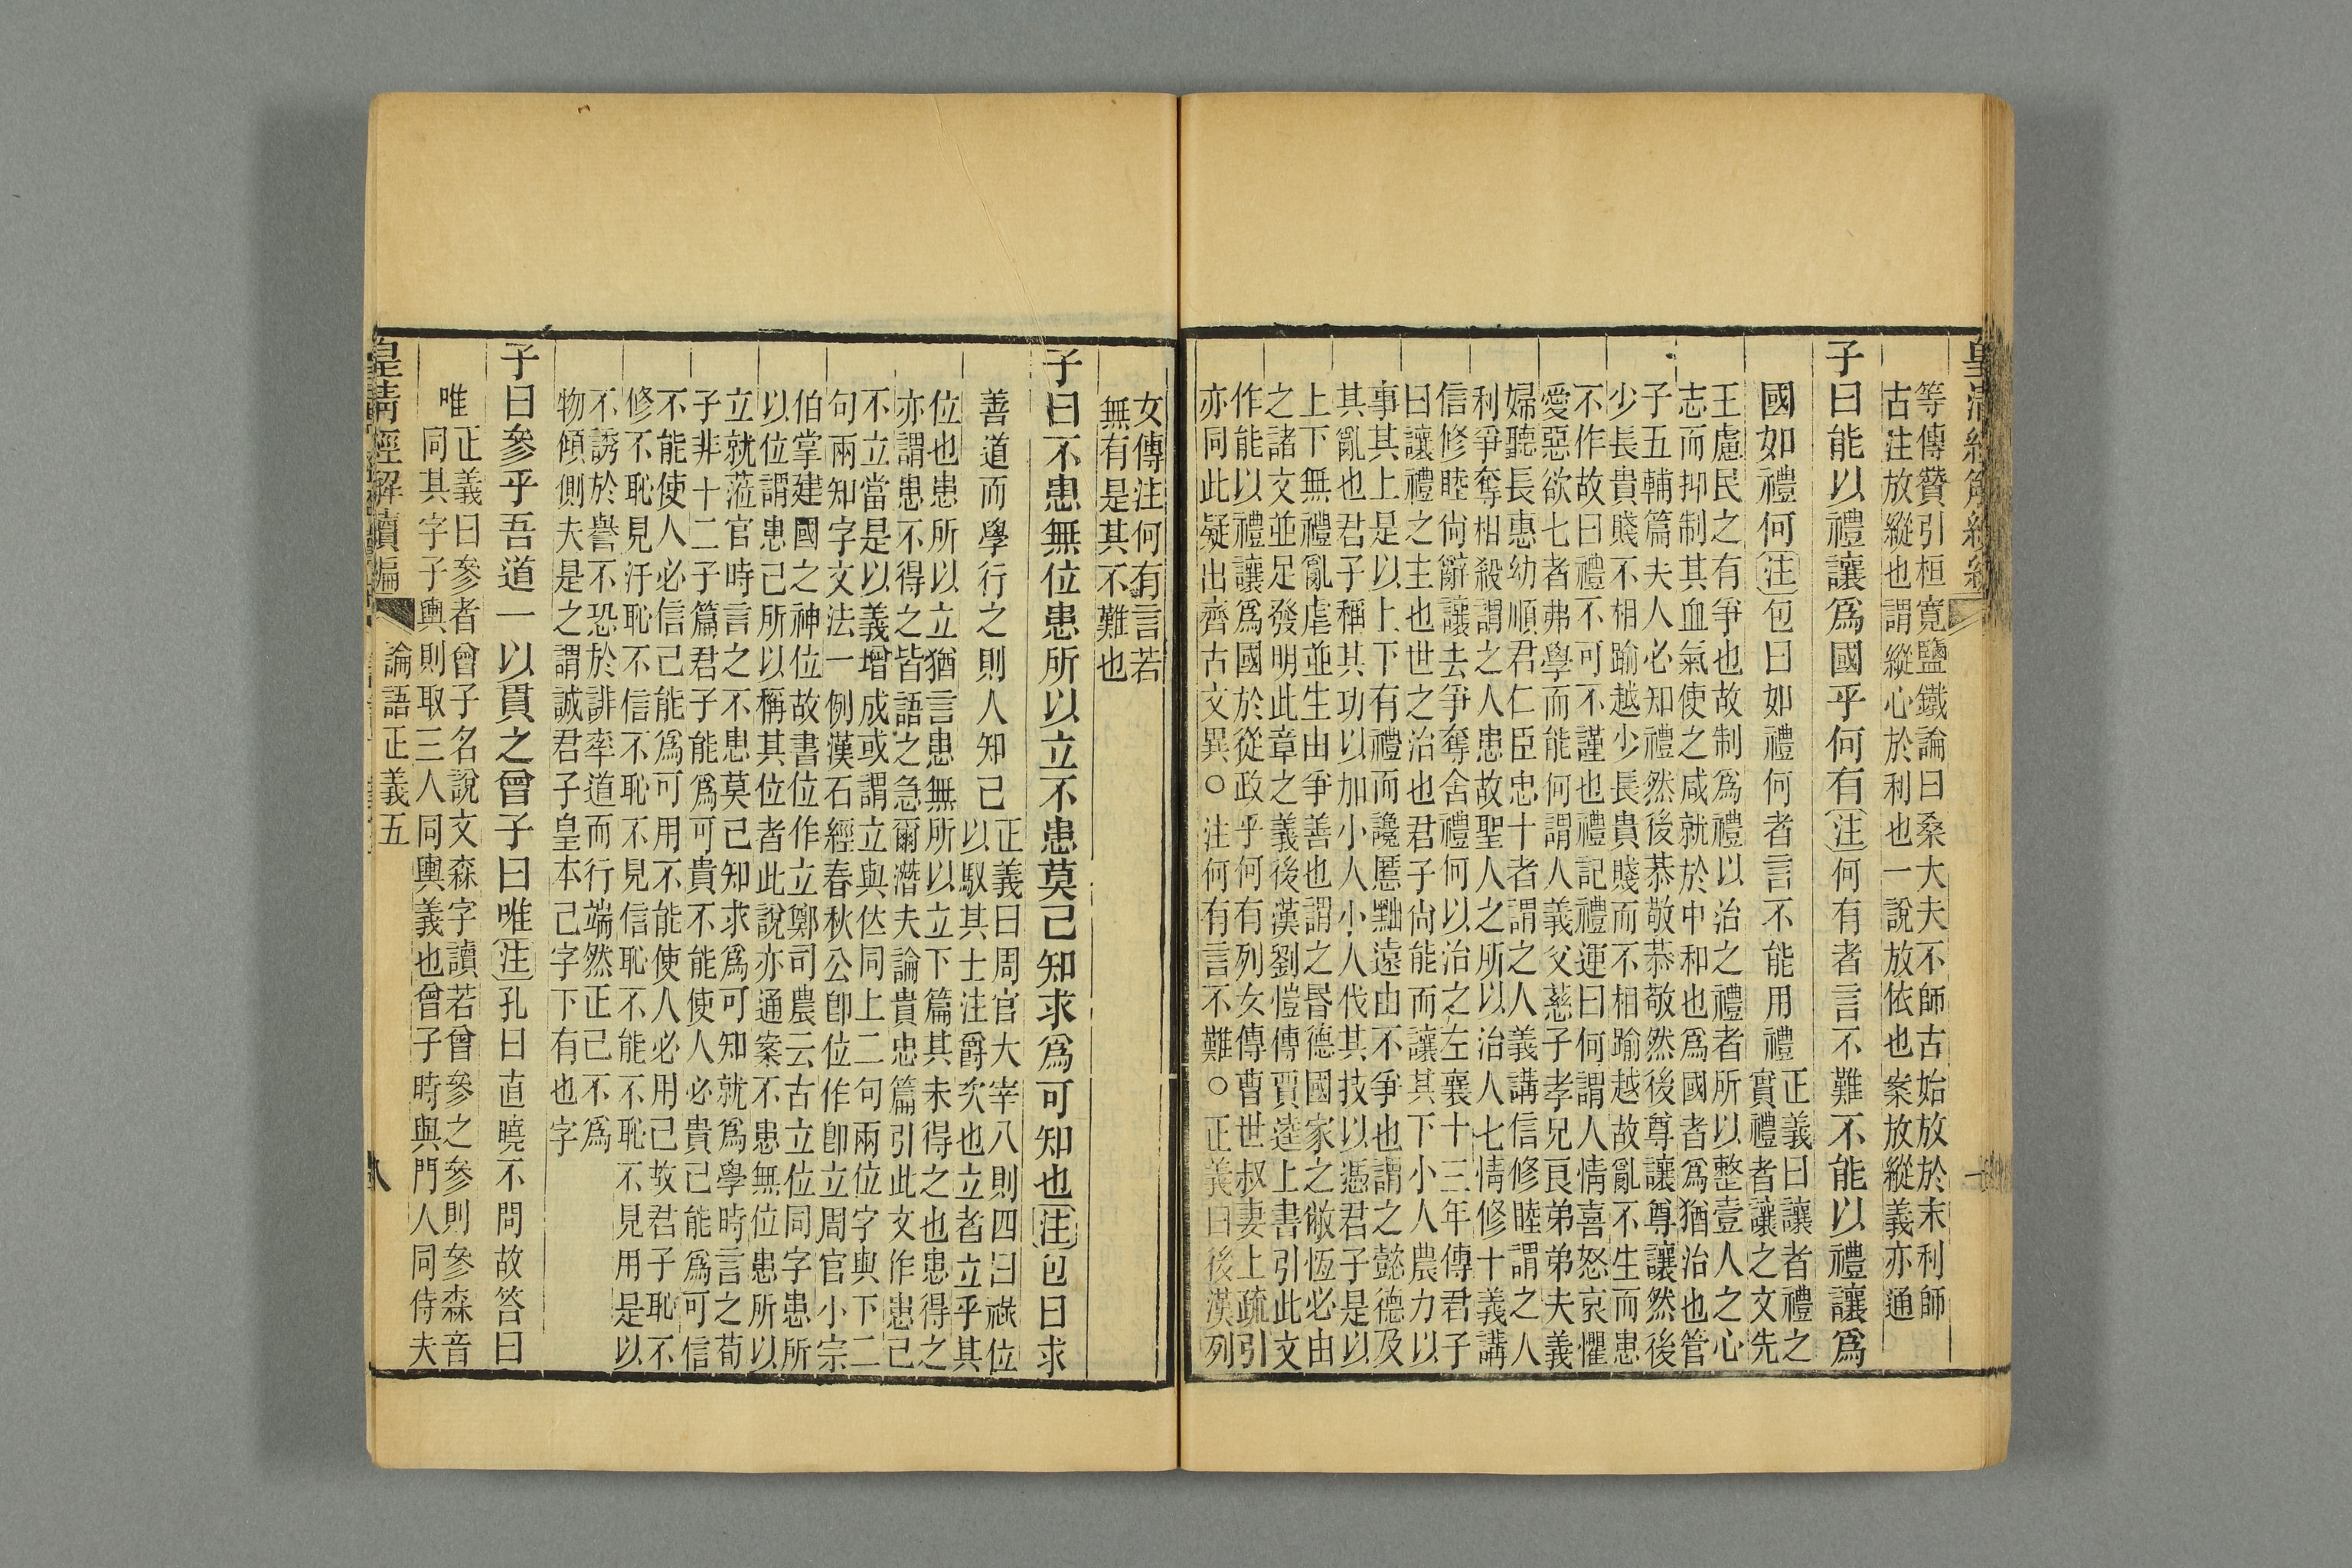 等傳贊引桓寬鹽鐵論曰桑大夫不師古始放於末利師
古注放縱也謂縱心於利也一說放依也案放縱義亦通
子曰能以禮讓爲國乎何有注何有者言不難不能以禮讓爲
國如禮何注包曰如禮何者言不能用禮
正義曰讓者禮之
實禮者讓之文先
王慮民之有爭也故制爲禮以治之禮者所以整壹人之心
志而抑制其血氣使之咸就於中和也爲國者爲猶治也管
子五輔篇夫人必知禮然後恭敬恭敬然後尊讓尊讓然後
少長貴賤不相踰越少長貴賤而不相踰越故亂不生而患
不作故曰禮不可不謹也禮記禮運曰何謂人情喜怒哀懼
愛惡欲七者弗學而能何謂人義父慈子孝兄良弟弟夫義
婦聽長惠幼順君仁臣忠十者謂之人義講信修睦謂之人
利爭奪相殺謂之人患故聖人之所以治人七情修十義講
信修睦尙辭讓去爭奪舍禮何以治之左襄十三年傳君子
曰讓禮之主也世之治也君子尙能而讓其下小人農力以
事其上是以上下有禮而讒慝黜遠由不爭也謂之懿德及
其亂也君子稱其功以加小人小人伐其技以憑君子是以
上下無禮亂虐並生由爭善也謂之昬德國家之敝恆必由
之諸文並足發明此章之義後漢劉愷傳賈逵上書引此文
作能以禮讓爲國於從政乎何有列女傳曹世叔妻上疏引
亦同此疑出齊古文異○注何有言不難○正義曰後漢列
女傳注何有言若
無有是其不難也
子曰不患無位患所以立不患莫己知求爲可知也注包曰求
善道而學行之則人知己
正義曰周官大宰八則四曰祿位
以馭其士注爵次也立者立乎其
位也患所以立猶言患無所以立下篇其未得之也患得之
亦謂患不得之皆語之急爾潛夫論貴忠篇引此文作患己
不立當是以義增成或謂立與位同上二句兩位字與下二
句兩知字文法一例漢石經春秋公卽位作卽立周官小宗
伯掌建國之神位故書位作立鄭司農云古立位同字患所
以位謂患己所以稱其位者此說亦通案不患無位患所以
立就涖官時言之不患莫己知求爲可知就爲學時言之荀
子非十二子篇君子能爲可貴不能使人必貴己能爲可信
不能使人必信己能爲可用不能使人必用己故君子恥不
修不恥見汙恥不信不恥不見信恥不能不恥不見用是以
不誘於譽不恐於誹率道而行端然正己不爲
物傾側夫是之謂誠君子皇本己字下有也字
子曰參乎吾道一以貫之曾子曰唯注孔曰直曉不問故答曰
唯
正義曰參者曾子名說文森字讀若曾參之參則參森音
同其字子輿則取三人同輿義也曾子時與門人同侍夫
皇清經解續編
論語正義五
八